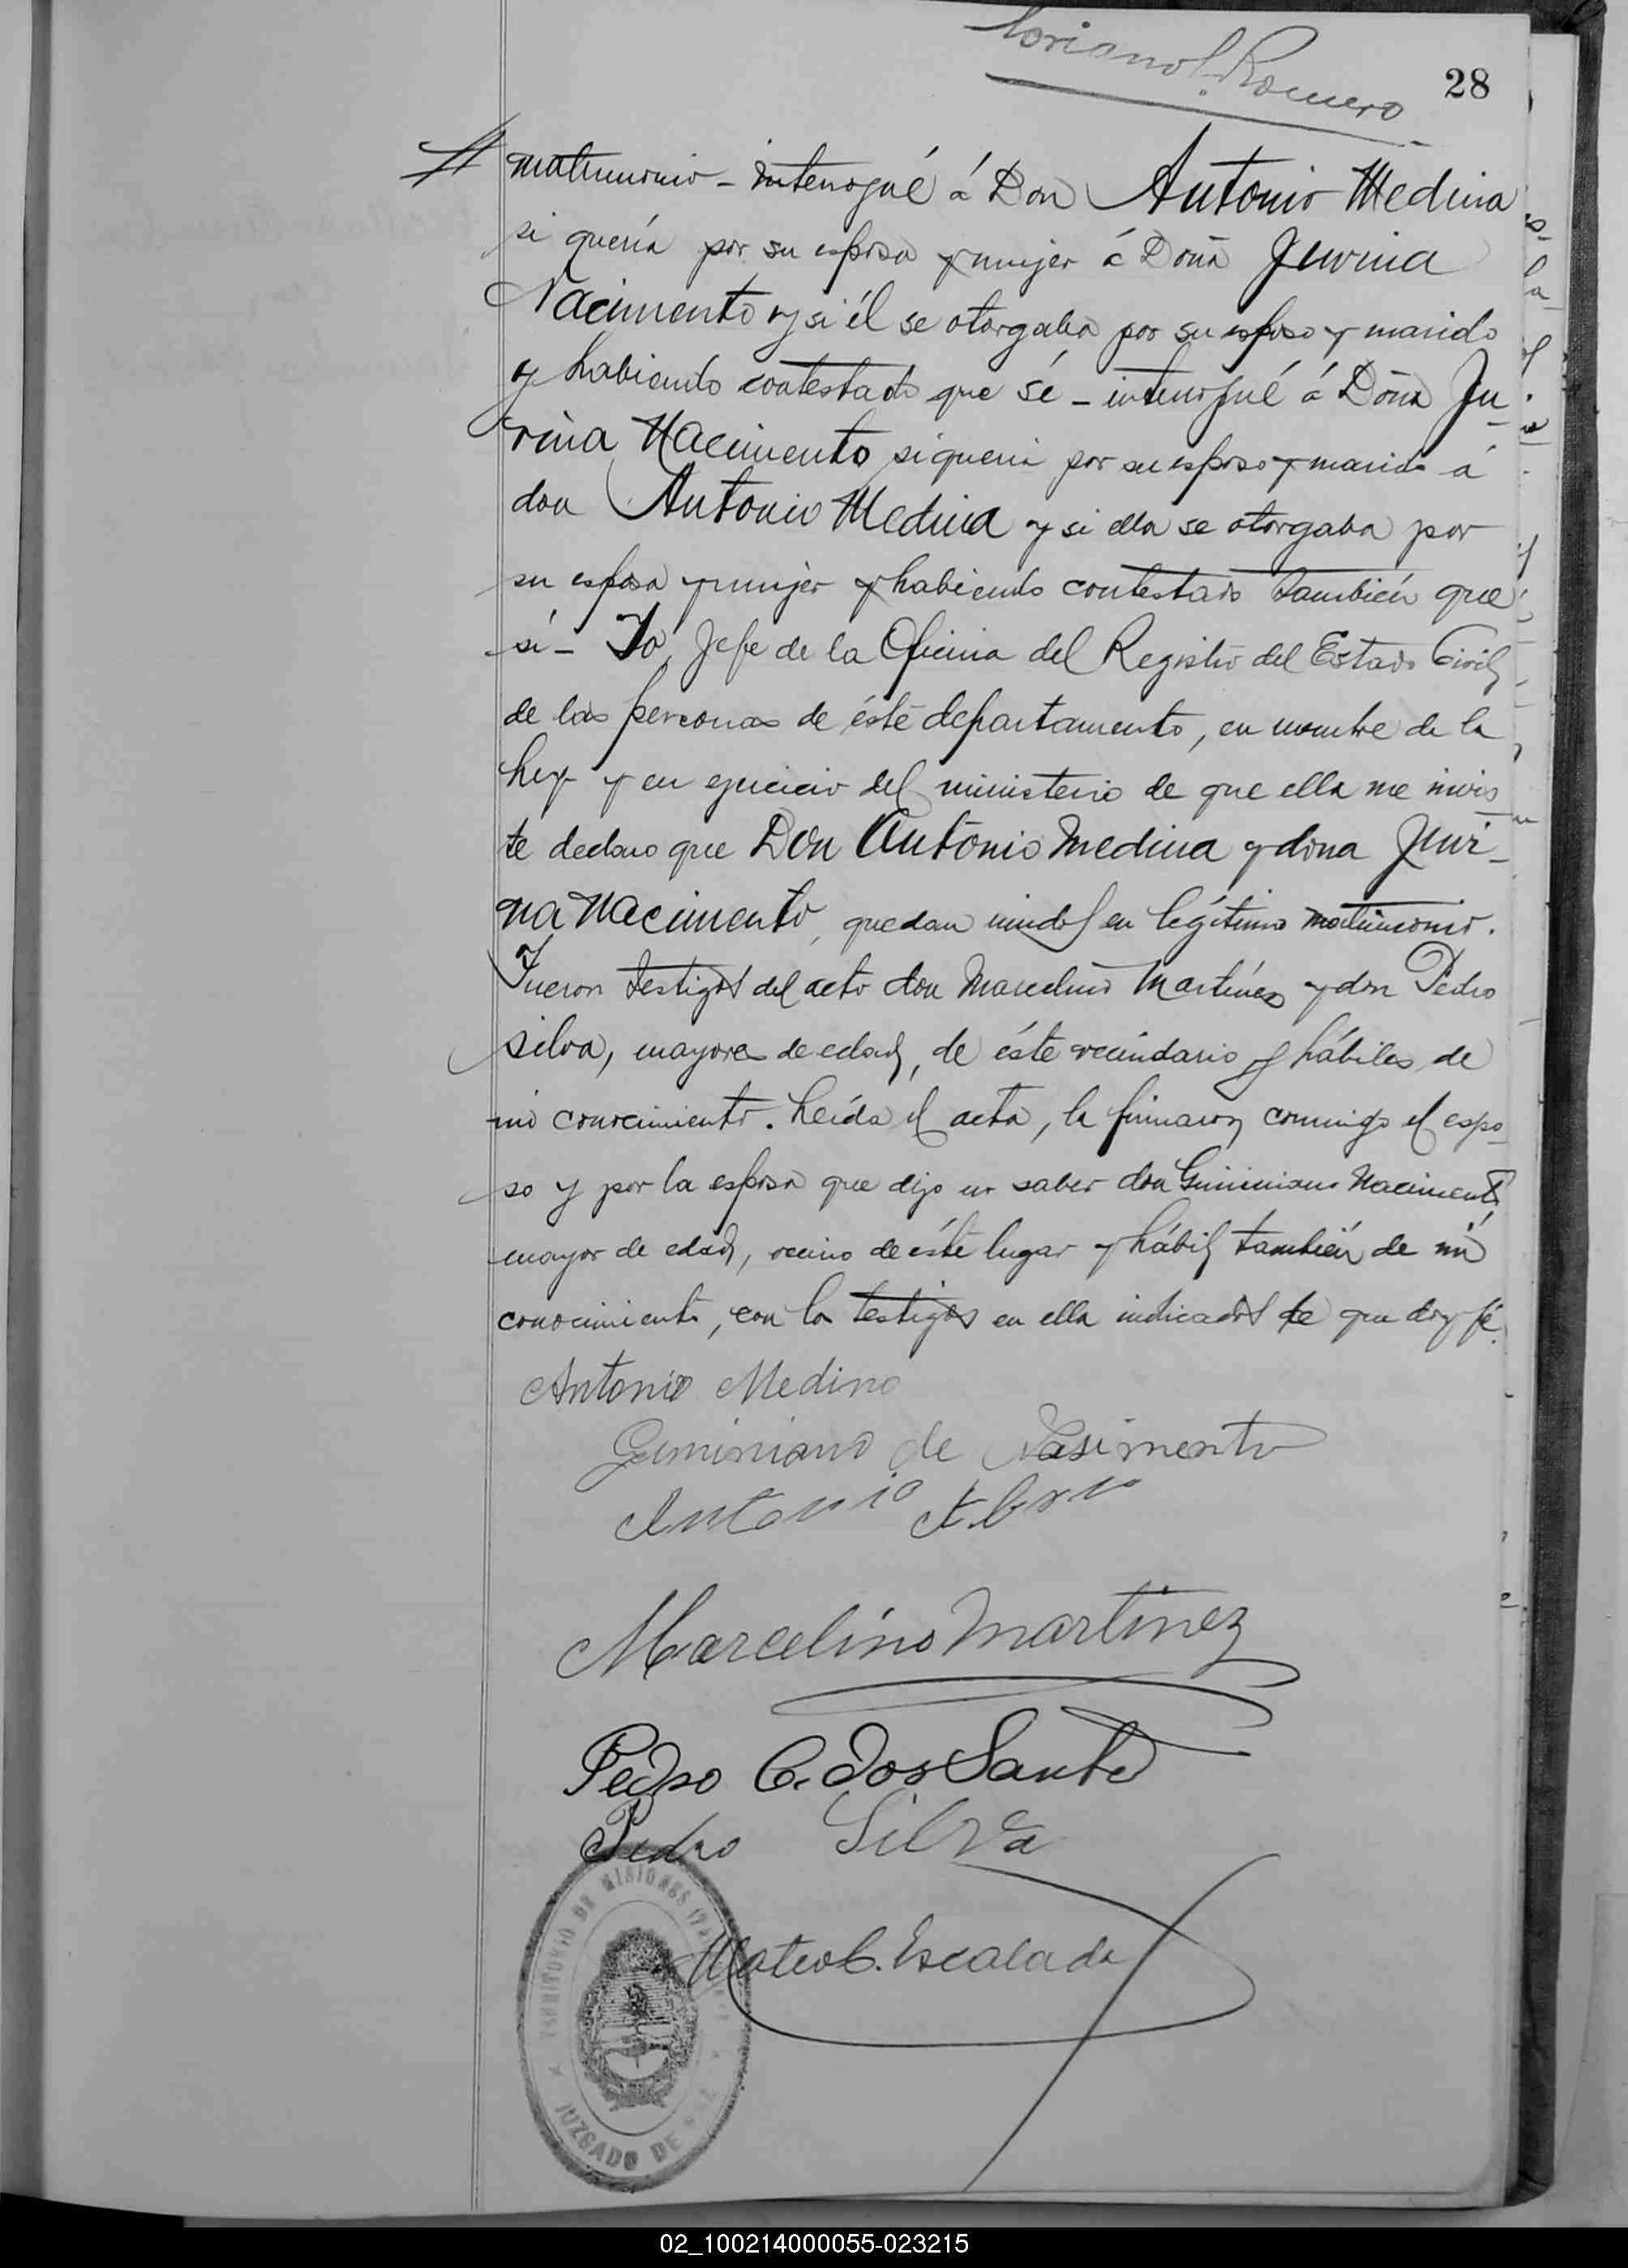 Soriano L. Romero
28
matrimonio - interrogué á Don Antonio Medina
si quería por su esposa y mujer á Doña Juvina
Nacimento y si él se otorgaba por su esposo y marido
y habiendo contestado que sí - interrogué á Doña Ju
rina Nacimento si queria por su esposo y marido á
don Antonio Medina y si ella se otorgaba por
su esposa y mujer y habiendo contestado también que
sí - Yo, Jefe de la Oficina del Registro del Estado Civil
de las personas de éste departamento, en nombre de la
Ley y en ejercicio del ministerio de que ella me invis
te declaro que Don Antonio Medina y dona Juri-
na Nacimento, quedan unidos en legítimo matrimonio.
Fueron testigos del acto don Marcelino Martínez y don Pedro
Silva, mayores de edad, de éste vecindario y hábiles de
mi conocimiento. Leída el acta, la firmaron conmigo el espo
so y por la esposa que dijo no saber don Giminiano Naciment
mayor de edad, vecino de éste lugar y hábil también de mi
conocimiento, con los testigos en ella indicados de que doy fé.
Antonio Medino
Geminiano de Nasimento
Antonio
Marcelino Martinez
Pedro C. dos Santos
Pedro Silva
TERRITORIO DE MISIONES
Mateo C. Escalada
JUZGADO DE
02_100214000055-023215